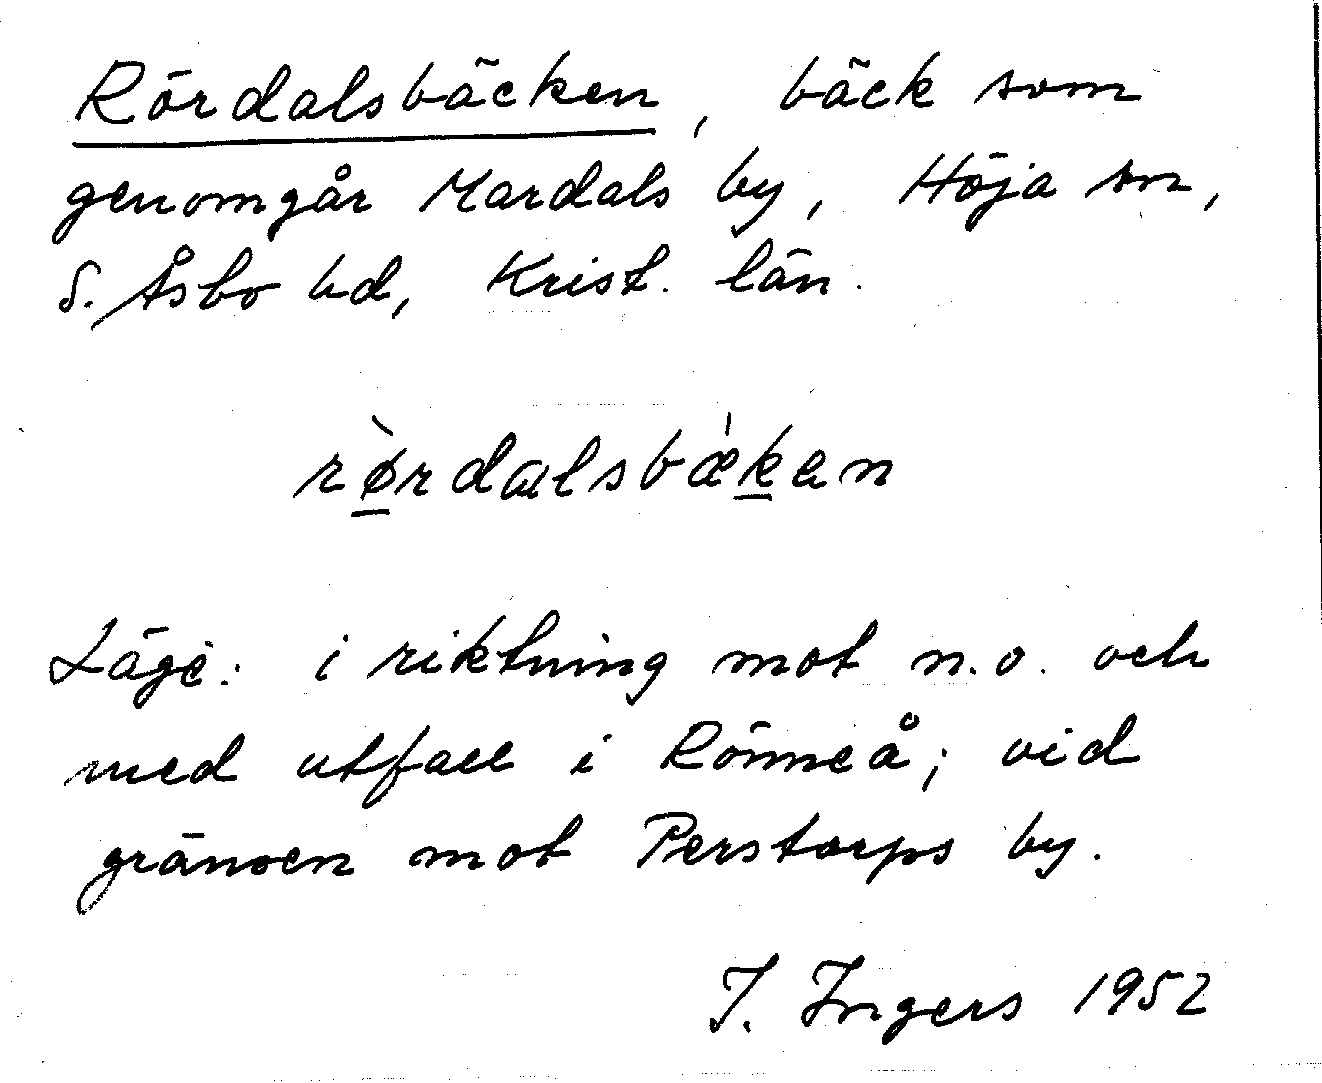 Rördalsbäcken, bäck som
genomgår Mardals by, Höja sn,
S. Åsbo hd, Krist. län.
rø̀rdalsbæ̍ken
Läge: i riktning mot n.o. och
med utfall i Rönneå; vid
gränsen mot Perstorps by.
I. Ingers 1952